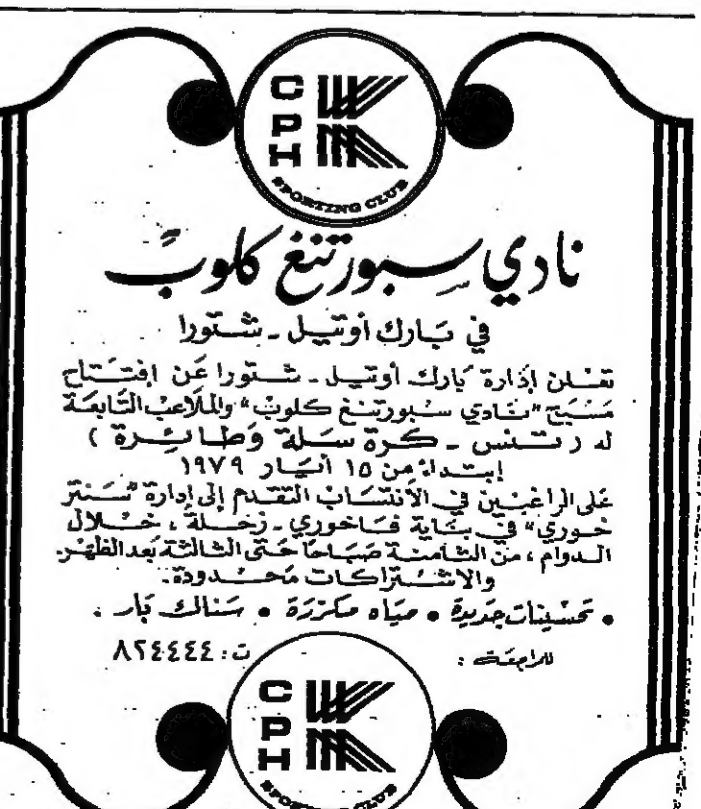 C
P
H
SPORTING CLUB
نادي سبورتنغ كلوب
في بارك أوتيل - شتورا
تعلن إدارة بارك أوتيل - شتورا عن افتتاح
مسبح "نادي سبورتنغ كلوب" والملاعب التابعة
له ( تنس - كرة سلة وطائرة )
إبتداءً من ١٥ أيار ١٩٧٩
على الراغبين في الانتساب التقدم إلى إدارة "سنتر
خوري" في بناية قاخوري - زحلة ، خلال
الدوام ، من الثامنة صباحًا حتى الثالثة بعد الظهر.
والاشتراكات محدودة.
• تحسينات جديدة • مياه مكررة • سناك بار .
للمراجعة : ت: ٨٢٤٤٤٤
C
P
H
SPORTING CLUB